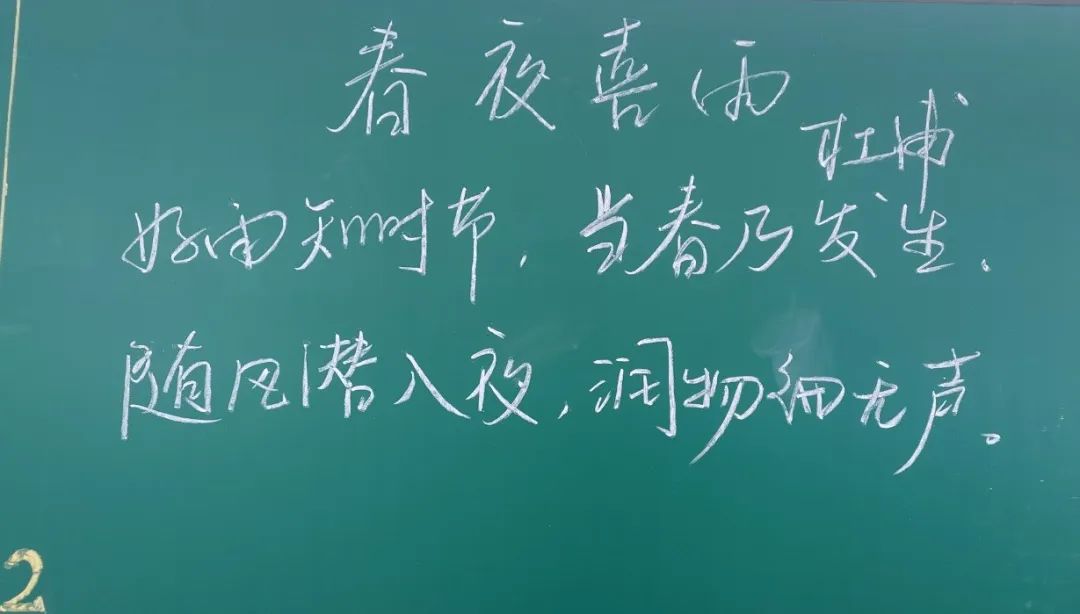 春夜喜雨
杜甫
好雨知时节,当春乃发生.
随风潜入夜,润物细无声。
2